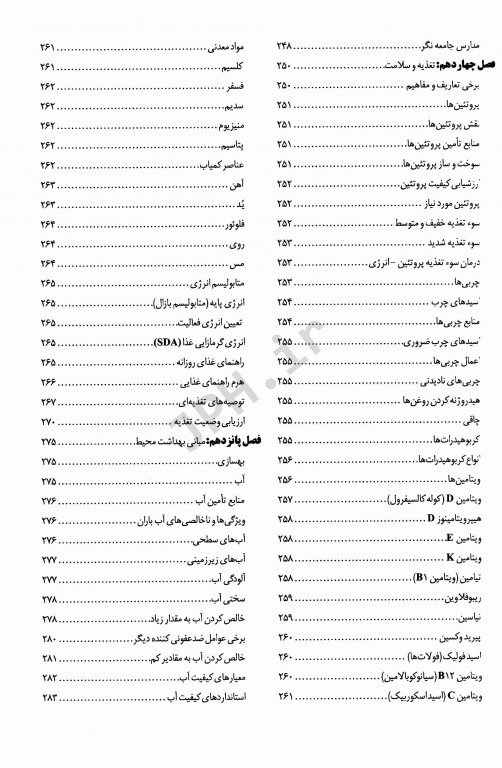 مدارس جامعه نگر ۲۴۸
فصل چهاردهم: تغذیه و سلامت ۲۵۰
برخی تعاریف و مفاهیم ۲۵۰
پروتئین‌ها ۲۵۱
نقش پروتئین‌ها ۲۵۱
منابع تأمین پروتئین‌ها ۲۵۱
سوخت و ساز پروتئین‌ها ۲۵۱
ارزشیابی کیفیت پروتئین ۲۵۲
پروتئین مورد نیاز ۲۵۲
سوء تغذیه خفیف و متوسط ۲۵۲
سوء تغذیه شدید ۲۵۳
درمان سوء تغذیه پروتئین - انرژی ۲۵۳
چربی‌ها ۲۵۳
اسیدهای چرب ۲۵۴
منابع چربی‌ها ۲۵۴
اسیدهای چرب ضروری ۲۵۵
اعمال چربی‌ها ۲۵۵
چربی‌های نادیدنی ۲۵۵
هیدروژنه کردن روغن‌ها ۲۵۵
چاقی ۲۵۵
کربوهیدرات‌ها ۲۵۵
انواع کربوهیدرات‌ها ۲۵۶
ویتامین‌ها ۲۵۶
ویتامین D (کوله کالسیفرول) ۲۵۷
هیپرویتامینوز D ۲۵۸
ویتامین E ۲۵۸
ویتامین K ۲۵۸
تیامین (ویتامین B۱) ۲۵۸
ریبوفلاوین ۲۵۹
نیاسین ۲۵۹
پیریدوکسین ۲۶۰
اسید فولیک (فولات‌ها) ۲۶۰
ویتامین B۱۲ (سیانوکوبالامین) ۲۶۰
ویتامین C (اسید اسکوربیک) ۲۶۱
مواد معدنی ۲۶۱
کلسیم ۲۶۱
فسفر ۲۶۲
سدیم ۲۶۲
منیزیوم ۲۶۲
پتاسیم ۲۶۲
عناصر کمیاب ۲۶۲
آهن ۲۶۳
یُد ۲۶۳
فلوئور ۲۶۴
روی ۲۶۴
مس ۲۶۴
متابولیسم انرژی ۲۶۵
انرژی پایه (متابولیسم بازال) ۲۶۵
تعیین انرژی فعالیت ۲۶۵
انرژی گرمازایی غذا (SDA) ۲۶۵
راهنمای غذای روزانه ۲۶۵
هرم راهنمای غذایی ۲۶۶
توصیه‌های تغذیه‌ای ۲۶۷
ارزیابی وضعیت تغذیه ۲۷۰
فصل پانزدهم: مبانی بهداشت محیط ۲۷۵
بهسازی ۲۷۵
آب ۲۷۵
منابع تأمین آب ۲۷۶
ویژگی‌ها و ناخالصی‌های آب باران ۲۷۶
آب‌های سطحی ۲۷۶
آب‌های زیرزمینی ۲۷۷
آلودگی آب ۲۷۷
سختی آب ۲۷۸
خالص کردن آب به مقدار زیاد ۲۷۸
برخی عوامل ضدعفونی کننده دیگر ۲۸۰
خالص کردن آب به مقادیر کم ۲۸۱
معیارهای کیفیت آب ۲۸۲
استانداردهای کیفیت آب ۲۸۳
JPH.ir